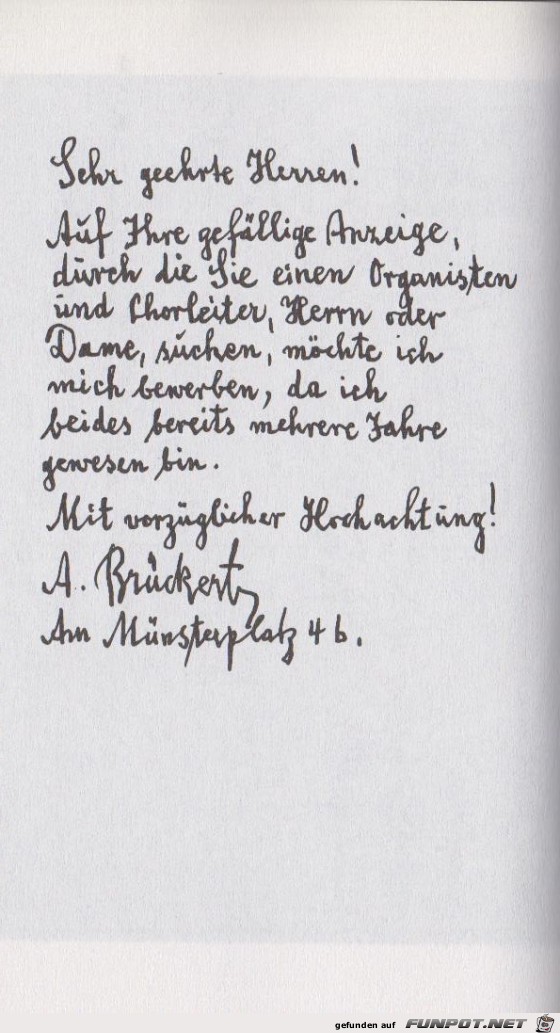 Sehr geehrte Herren!
Auf Ihre gefällige Anzeige,
durch die Sie einen Organisten
und Chorleiter, Herrn oder
Dame, suchen, möchte ich
mich bewerben, da ich
beides bereits mehrere Jahre
gewesen bin.
Mit vorzüglicher Hochachtung!
A. Brückertz
Am Münsterplatz 4 b.
gefunden auf FUNPOT.NET